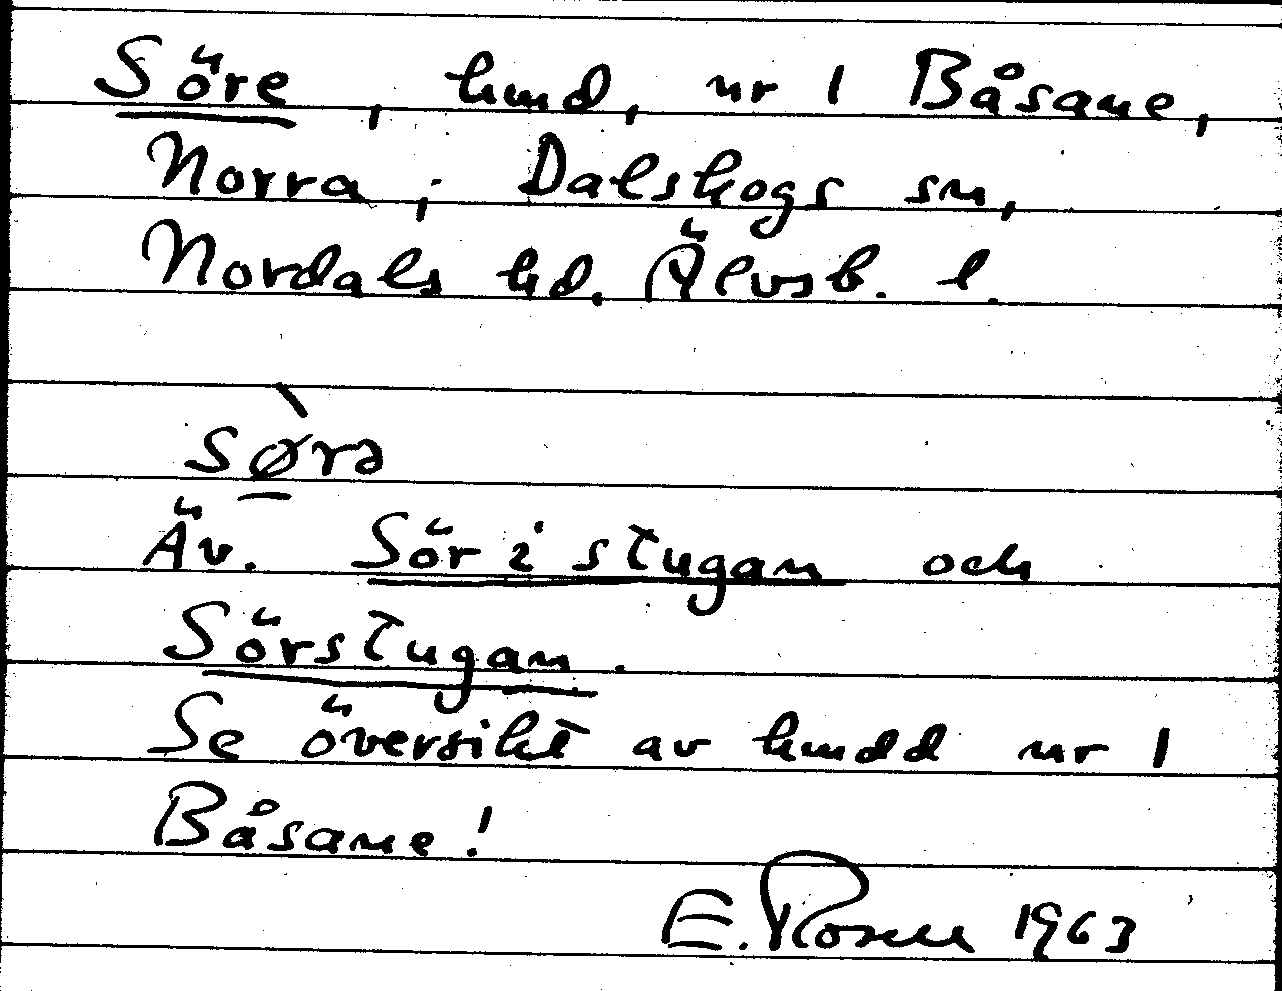 Söre, hmd, nr 1 Båsane,
Norra; Dalskogs sn,
Nordals hd. Älvsb. l.
sø̀rə
Äv. Sör i stugan och
Sörstugan.
Se översikt av hmdd nr 1
Båsane!
E. Rosell 1963